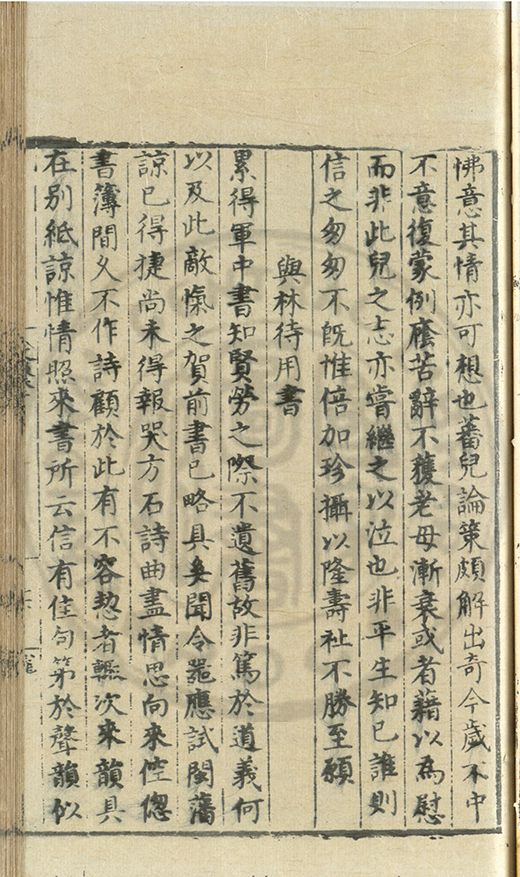 怫意其情亦可想也蕃兒論策頗解出奇今歲不中
不意復蒙例廕苦辭不獲老母漸衰或者藉以為慰
而非此兒之志亦嘗繼之以泣也非平生知已誰則
信之匆匆不旣惟倍加珍攝以隆壽祉不勝至願
與林待用書
累得軍中書知賢勞之際不遺舊故非篤於道義何
以及此敵愾之賀前書已略具矣聞令嗣應試閩藩
諒已得捷尚未得報哭方石詩曲盡情思向來倥傯
書簿間久不作詩顧於此有不容恝者輒次來韻具
在別紙諒惟情照來書所云信有佳句第於聲韻似